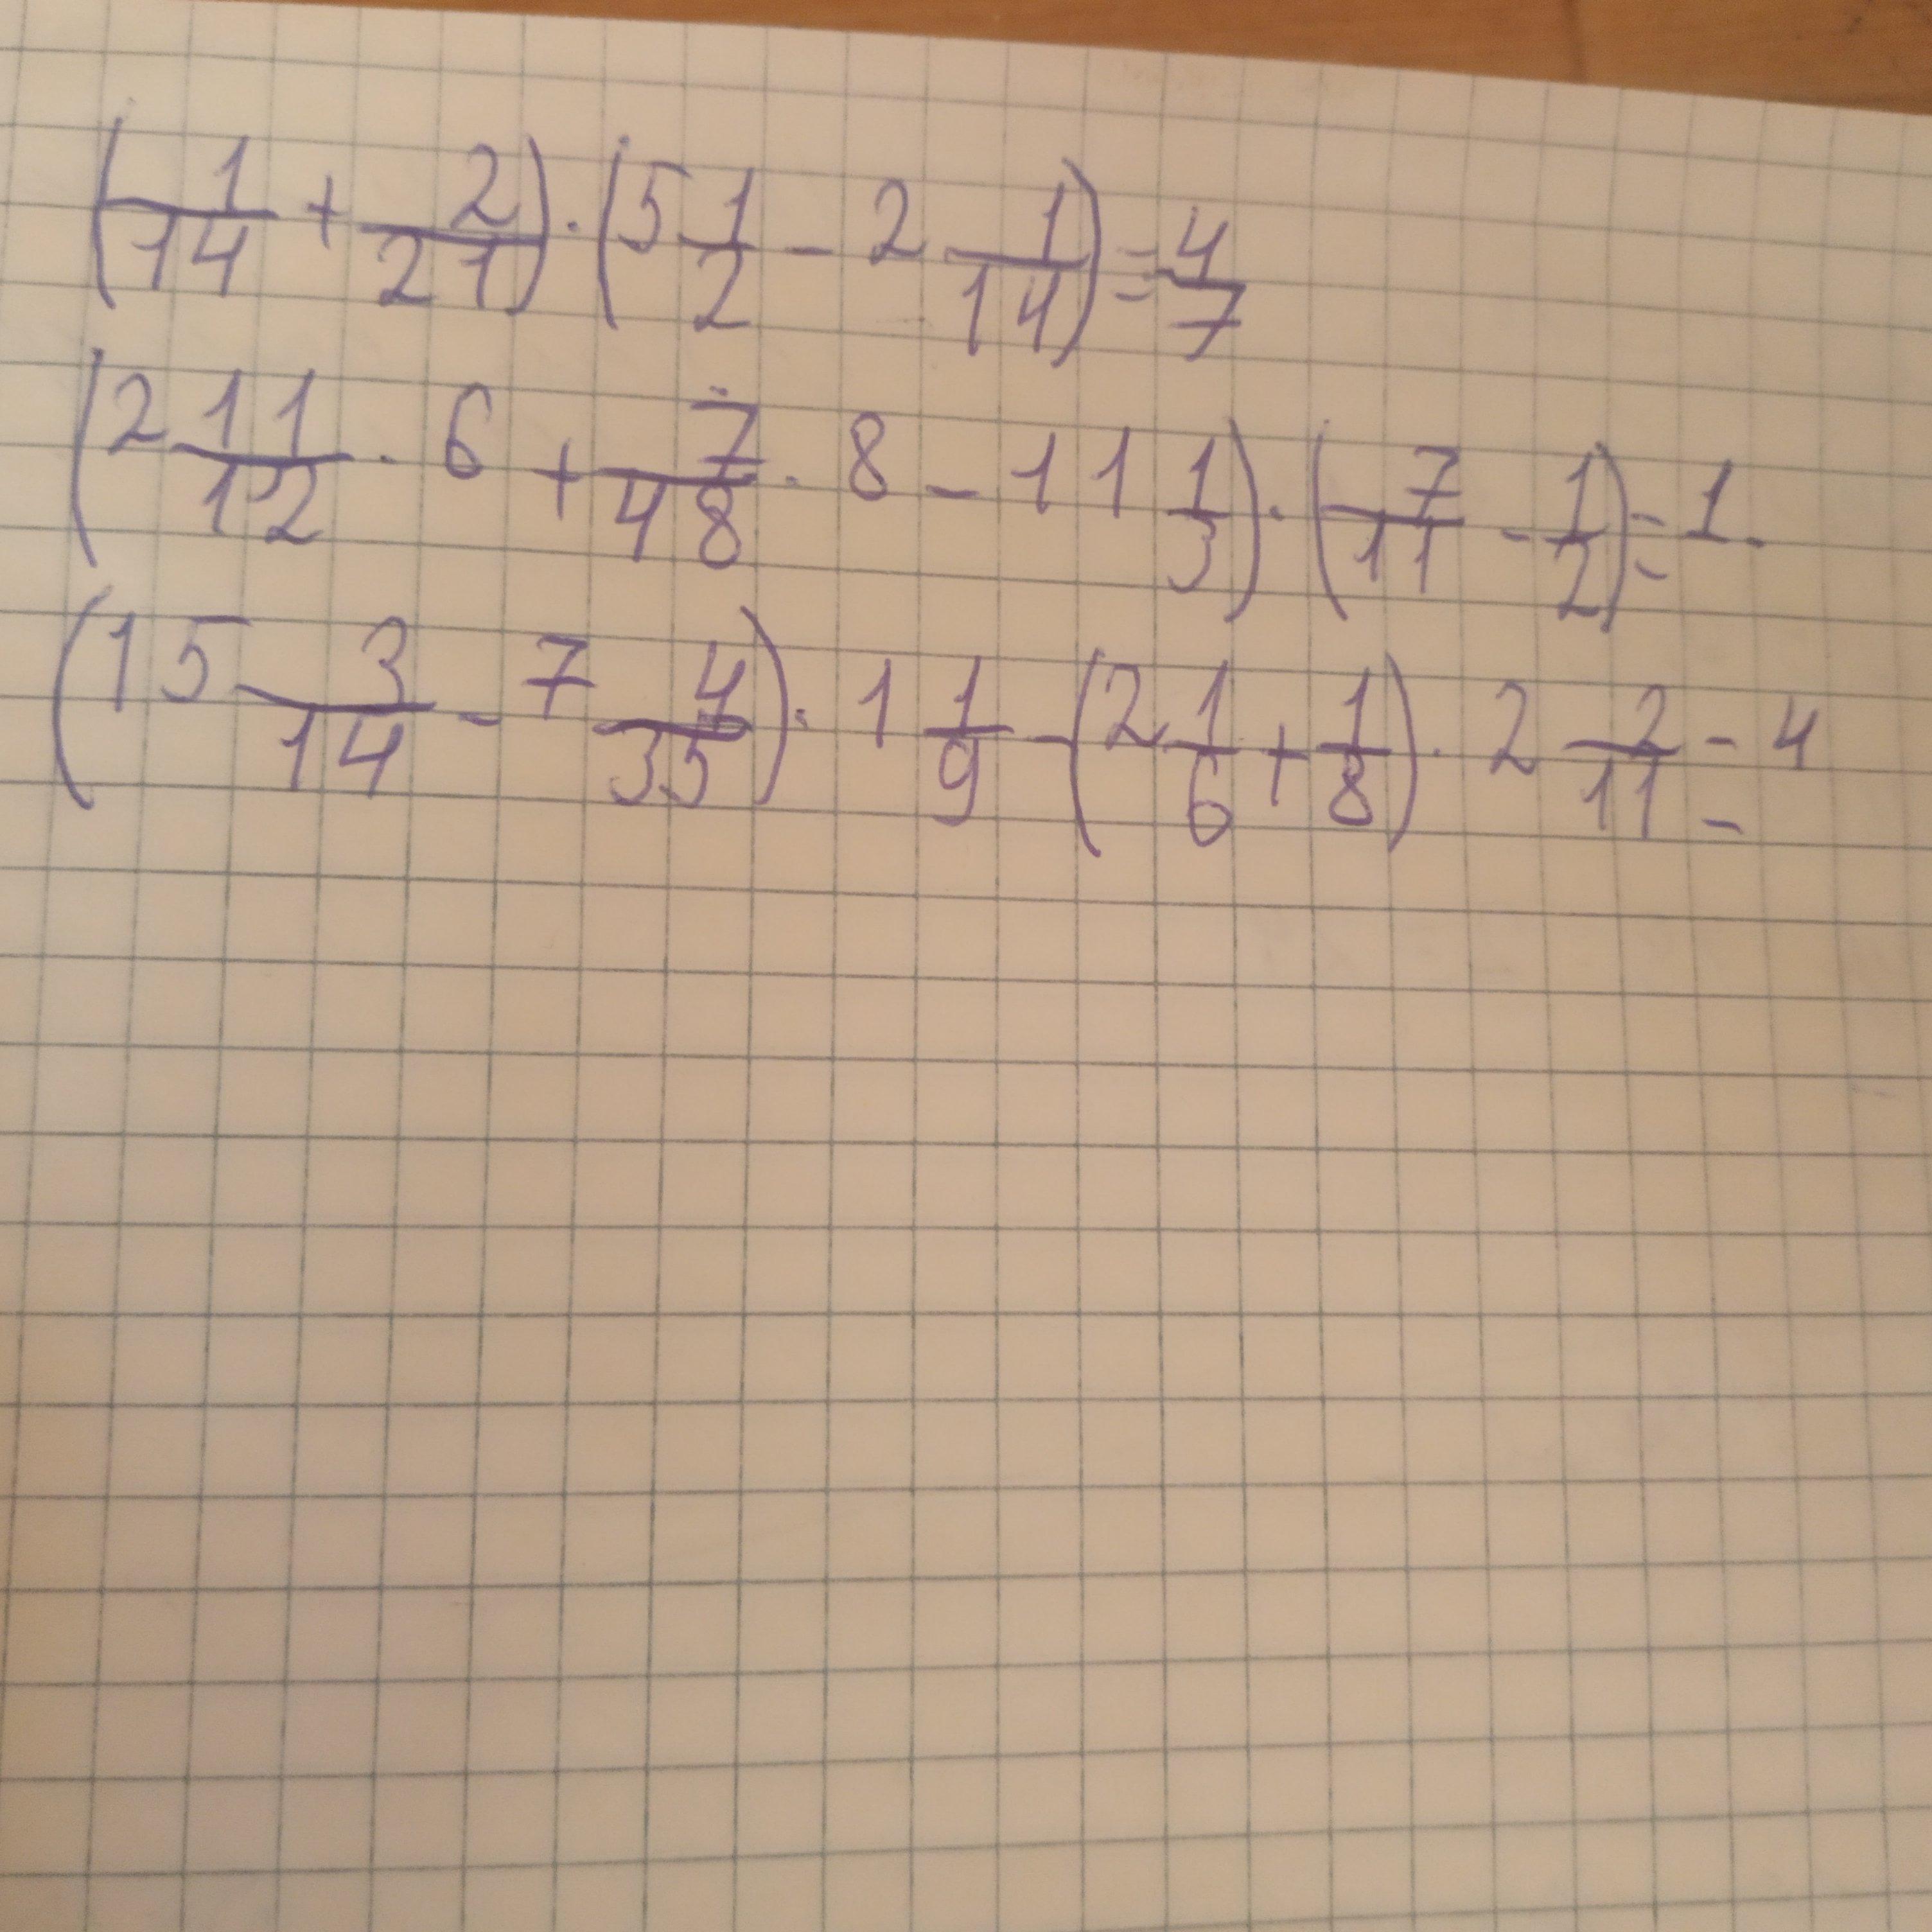 (1/14 + 2/21) · (5 1/2 - 2 1/14) = 4/7
(2 11/12 · 6 + 7/48 · 8 - 11 1/3) · (7/11 - 1/2) = 1.
(15 3/14 - 7 4/35) · 1 1/9 - (2 1/6 + 1/8) · 2 2/11 = 4